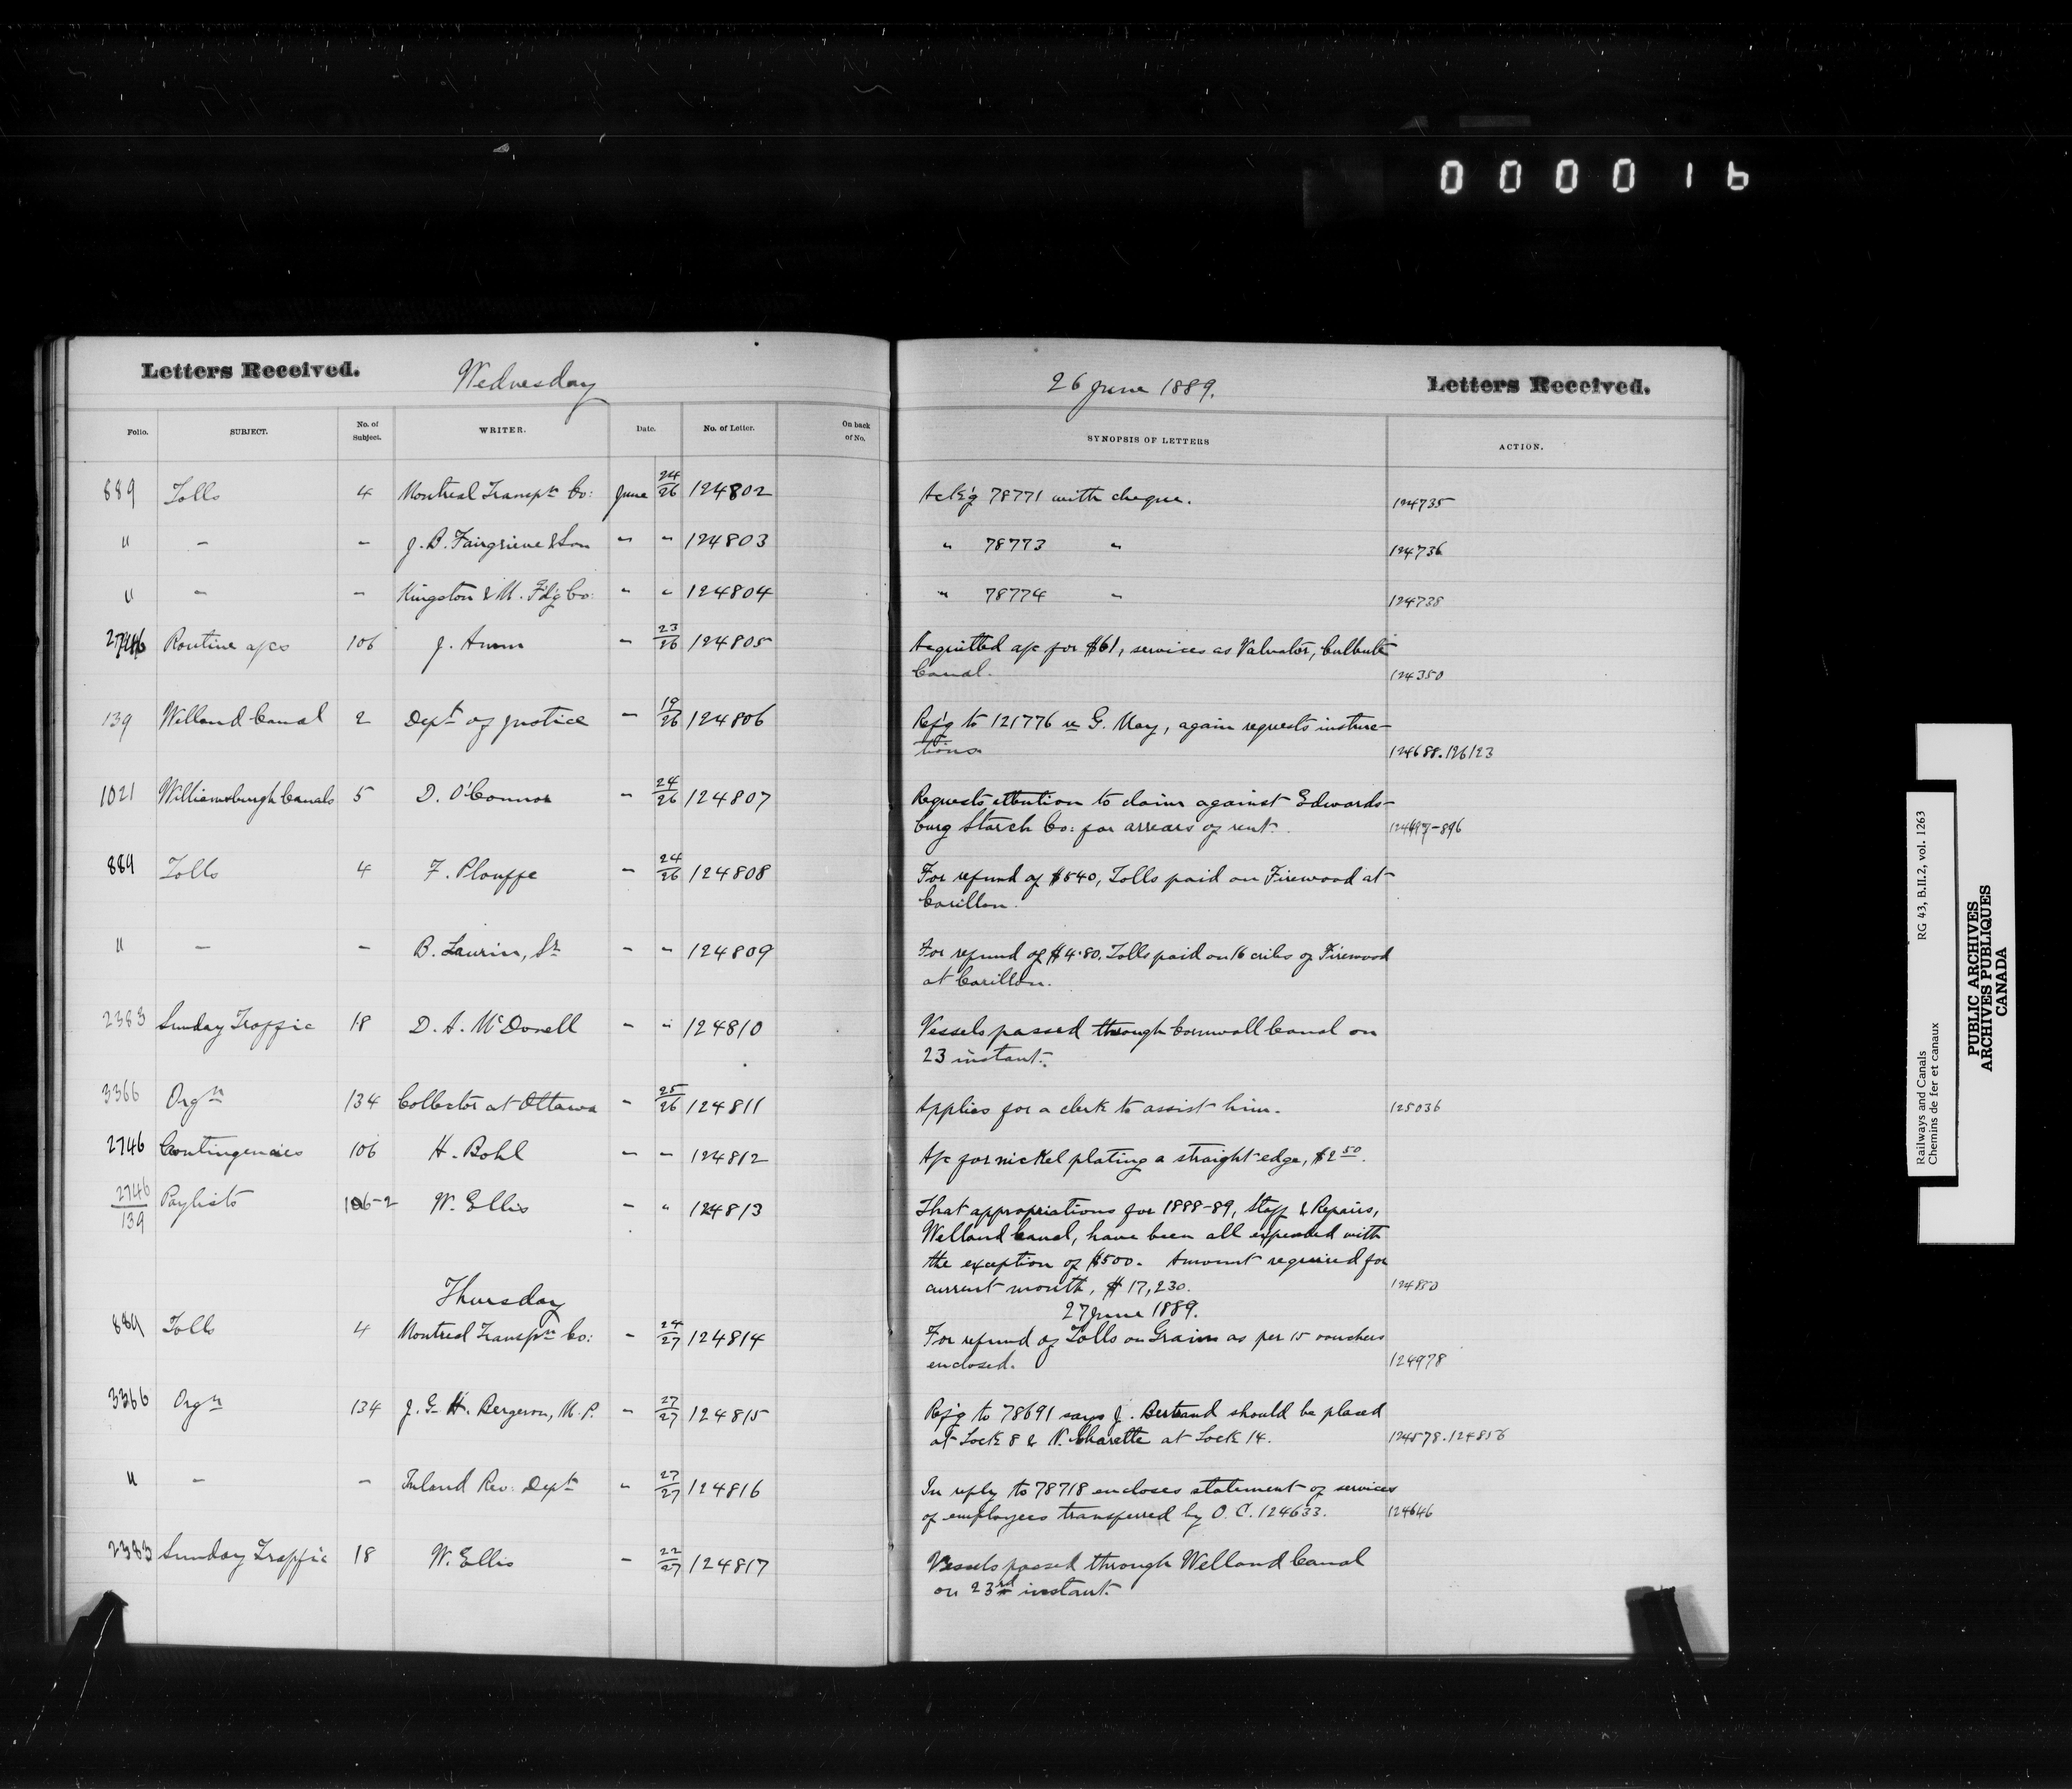 000016
Letters Received. Wednesday 26 June 1889. Letters Received.
Folio. SUBJECT. No. of Subject. WRITER. Date. No. of Letter. On back of No. SYNOPSIS OF LETTERS ACTION.
889 Tolls 4 Montreal Transpn Co: June 24/26 124802 Ack'g 78771 with cheque. 124735
" – – J. B. Fairgrieve & Son " " 124803 " 78773 " 124736
" – – Kingston & M. F'd'g Co: " " 124804 " 78774 " 124738
2746 Routine a/cs 106 J. – 23/26 124805 Acquitted a/c for $61, services as Valuator, Culbute
Canal. 124350
139 Welland Canal 2 Dept of Justice – 19/26 124806 Ref'g to 121776 re G. May, again requests instruc-
tions 124688.126123
1021 Williamsburgh Canals 5 D. O'Connor – 24/26 124807 Requests attention to claim against Edwards-
burg Starch Co: for arrears of rent. -896
889 Tolls 4 F. Plouffe – 24/26 124808 For refund of $540, Tolls paid on Firewood at
Carillon.
" – – B. Laurin, Sr – " 124809 For refund of $4.80. Tolls paid on 16 cribs of Firewood
at Carillon.
2383 Sunday Traffic 18 D. A. McDonell – " 124810 Vessels passed through Cornwall Canal on
23 instant.
3366 Orgn 134 Collector at Ottawa – 25/26 124811 Applies for a clerk to assist him. 125036
2746 Contingencies 106 H. Bohl – – 124812 A/c for nickel plating a straight edge, $2 50.
2746/139 Paylists 106-2 W. Ellis – " 124813 That appropriations for 1888-89, Staff & Repairs,
Welland Canal, have been all expended with
the exception of $500. Amount required for
current month, $17,230. 124850
Thursday 27 June 1889.
889 Tolls 4 Montreal Transpn Co: – 24/27 124814 For refund of Tolls on Grain as per 15 vouchers
enclosed. 124978
3366 Orgn 134 J. G. H. Bergeron, M.P. – 27/27 124815 Ref'g to 78691 says J. Bertrand should be placed
at Lock 8 & N. Charette at Lock 14. 124578.124856
" – – Inland Rev: Dept " 27/27 124816 In reply to 78718 encloses statement of services
of employees transferred by O. C. 124633. 124646
2383 Sunday Traffic 18 W. Ellis – 22/27 124817 Vessels passed through Welland Canal
on 23rd instant.
Railways and Canals RG 43, B.II.2, vol. 1263
Chemins de fer et canaux
PUBLIC ARCHIVES
ARCHIVES PUBLIQUES
CANADA